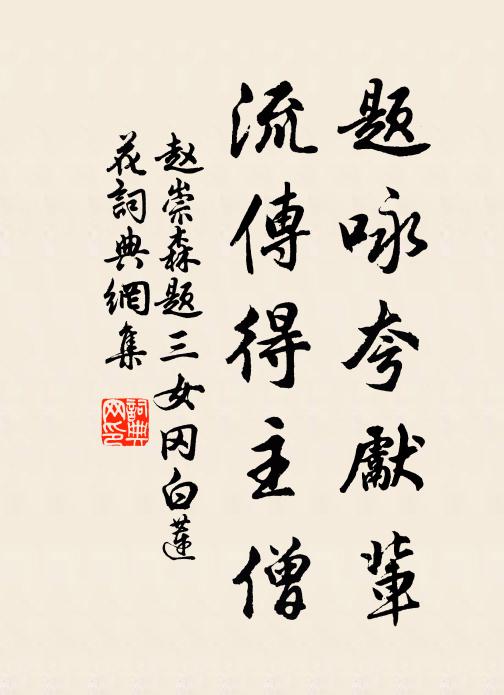 题咏夸献輩
流傳得主僧
赵崇森题三女冈白蓮
花詞典網集
詞典网印